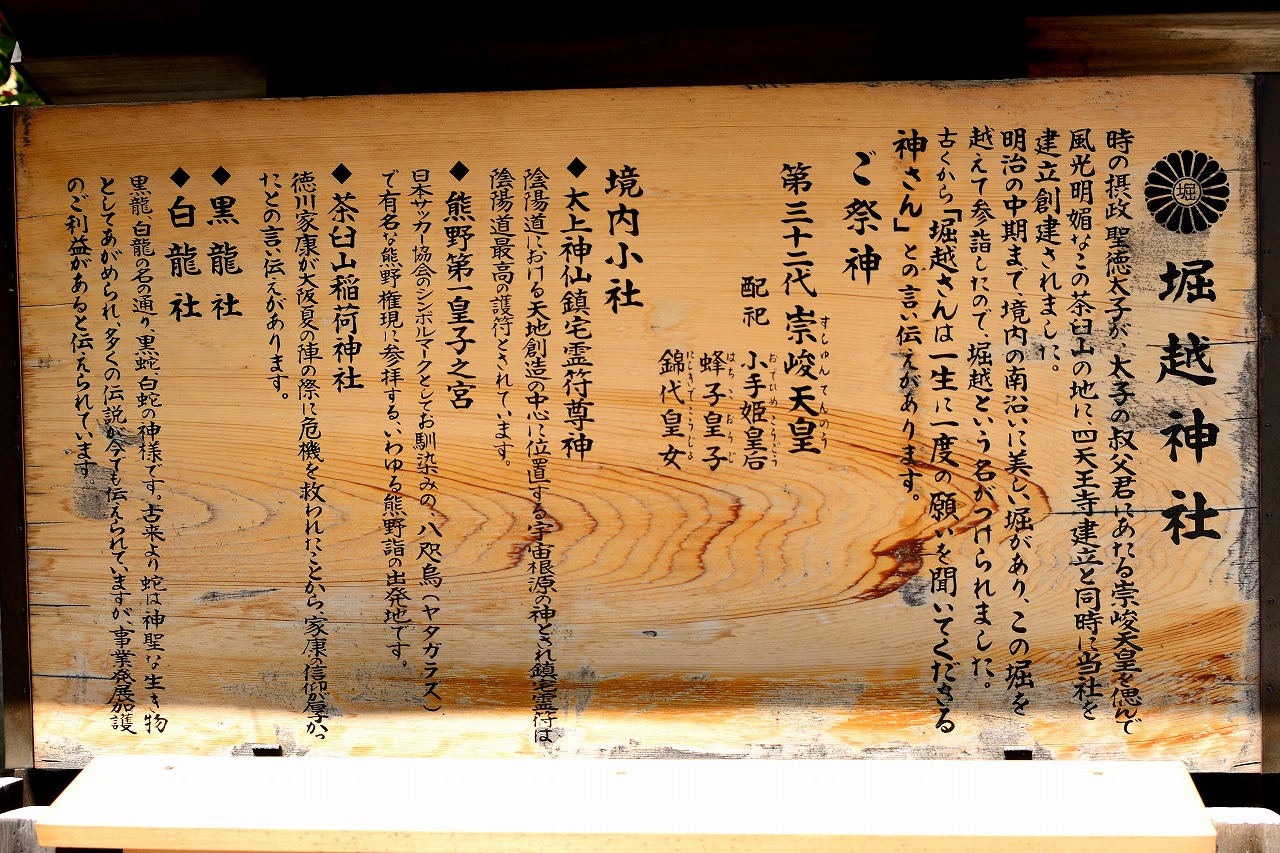 堀
堀越神社
時の摂政 聖徳太子が、太子の叔父君にあたる崇峻天皇を偲んで
風光明媚なこの茶臼山の地に、四天王寺建立と同時に当社を
建立創建されました。
明治の中期まで境内の南沿いに美しい堀があり、この堀を
越えて参詣したので、堀越という名がつけられました。
古くから「堀越さんは一生に一度の願いを聞いてくださる
神さん」との言い伝えがあります。
ご祭神
第三十二代 崇峻天皇
すしゅんてんのう
配祀 小手姫皇后
おてひめこうごう
蜂子皇子
はちこおうじ
錦代皇女
にしきてこうじょ
境内小社
◆太上神仙鎮宅霊符尊神
陰陽道における天地創造の中心に位置する宇宙根源の神とされ鎮宅霊符は
陰陽道最高の護符とされています。
◆熊野第一皇子之宮
日本サッカー協会のシンボルマークとしてお馴染みの、八咫烏(ヤタガラス)
で有名な熊野権現に参拝する、いわゆる熊野詣の出発地です。
◆茶臼山稲荷神社
徳川家康が大阪夏の陣の際に危機を救われたことから、家康の信仰が厚かっ
たとの言い伝えがあります。
◆黒龍社
◆白龍社
黒龍、白龍の名の通り、黒蛇、白蛇の神様です。古来より蛇は神聖な生き物
としてあがめられ、多くの伝説が今でも伝えられていますが、事業発展加護
のご利益があると伝えられています。